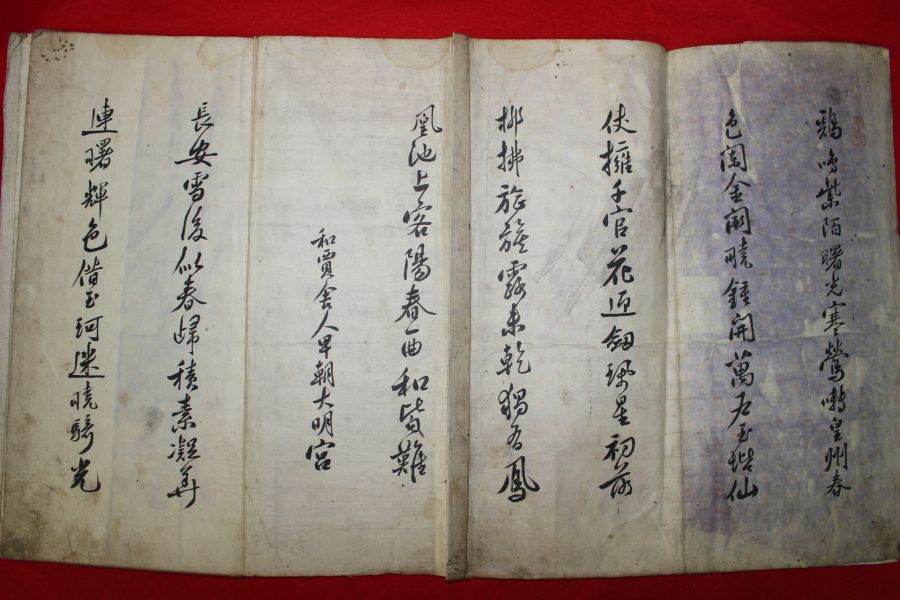 鷄鳴紫陌曙光寒鶯囀皇州春
色闌金闕曉鍾開萬戶玉階仙
仗擁千官花迎劒珮星初落
柳拂旌旗露未乾獨有鳳
凰池上客陽春一曲和皆難
和賈舍人早朝大明宮
長安雪後似春歸積素凝華
連曙輝色借玉珂迷曉騎光